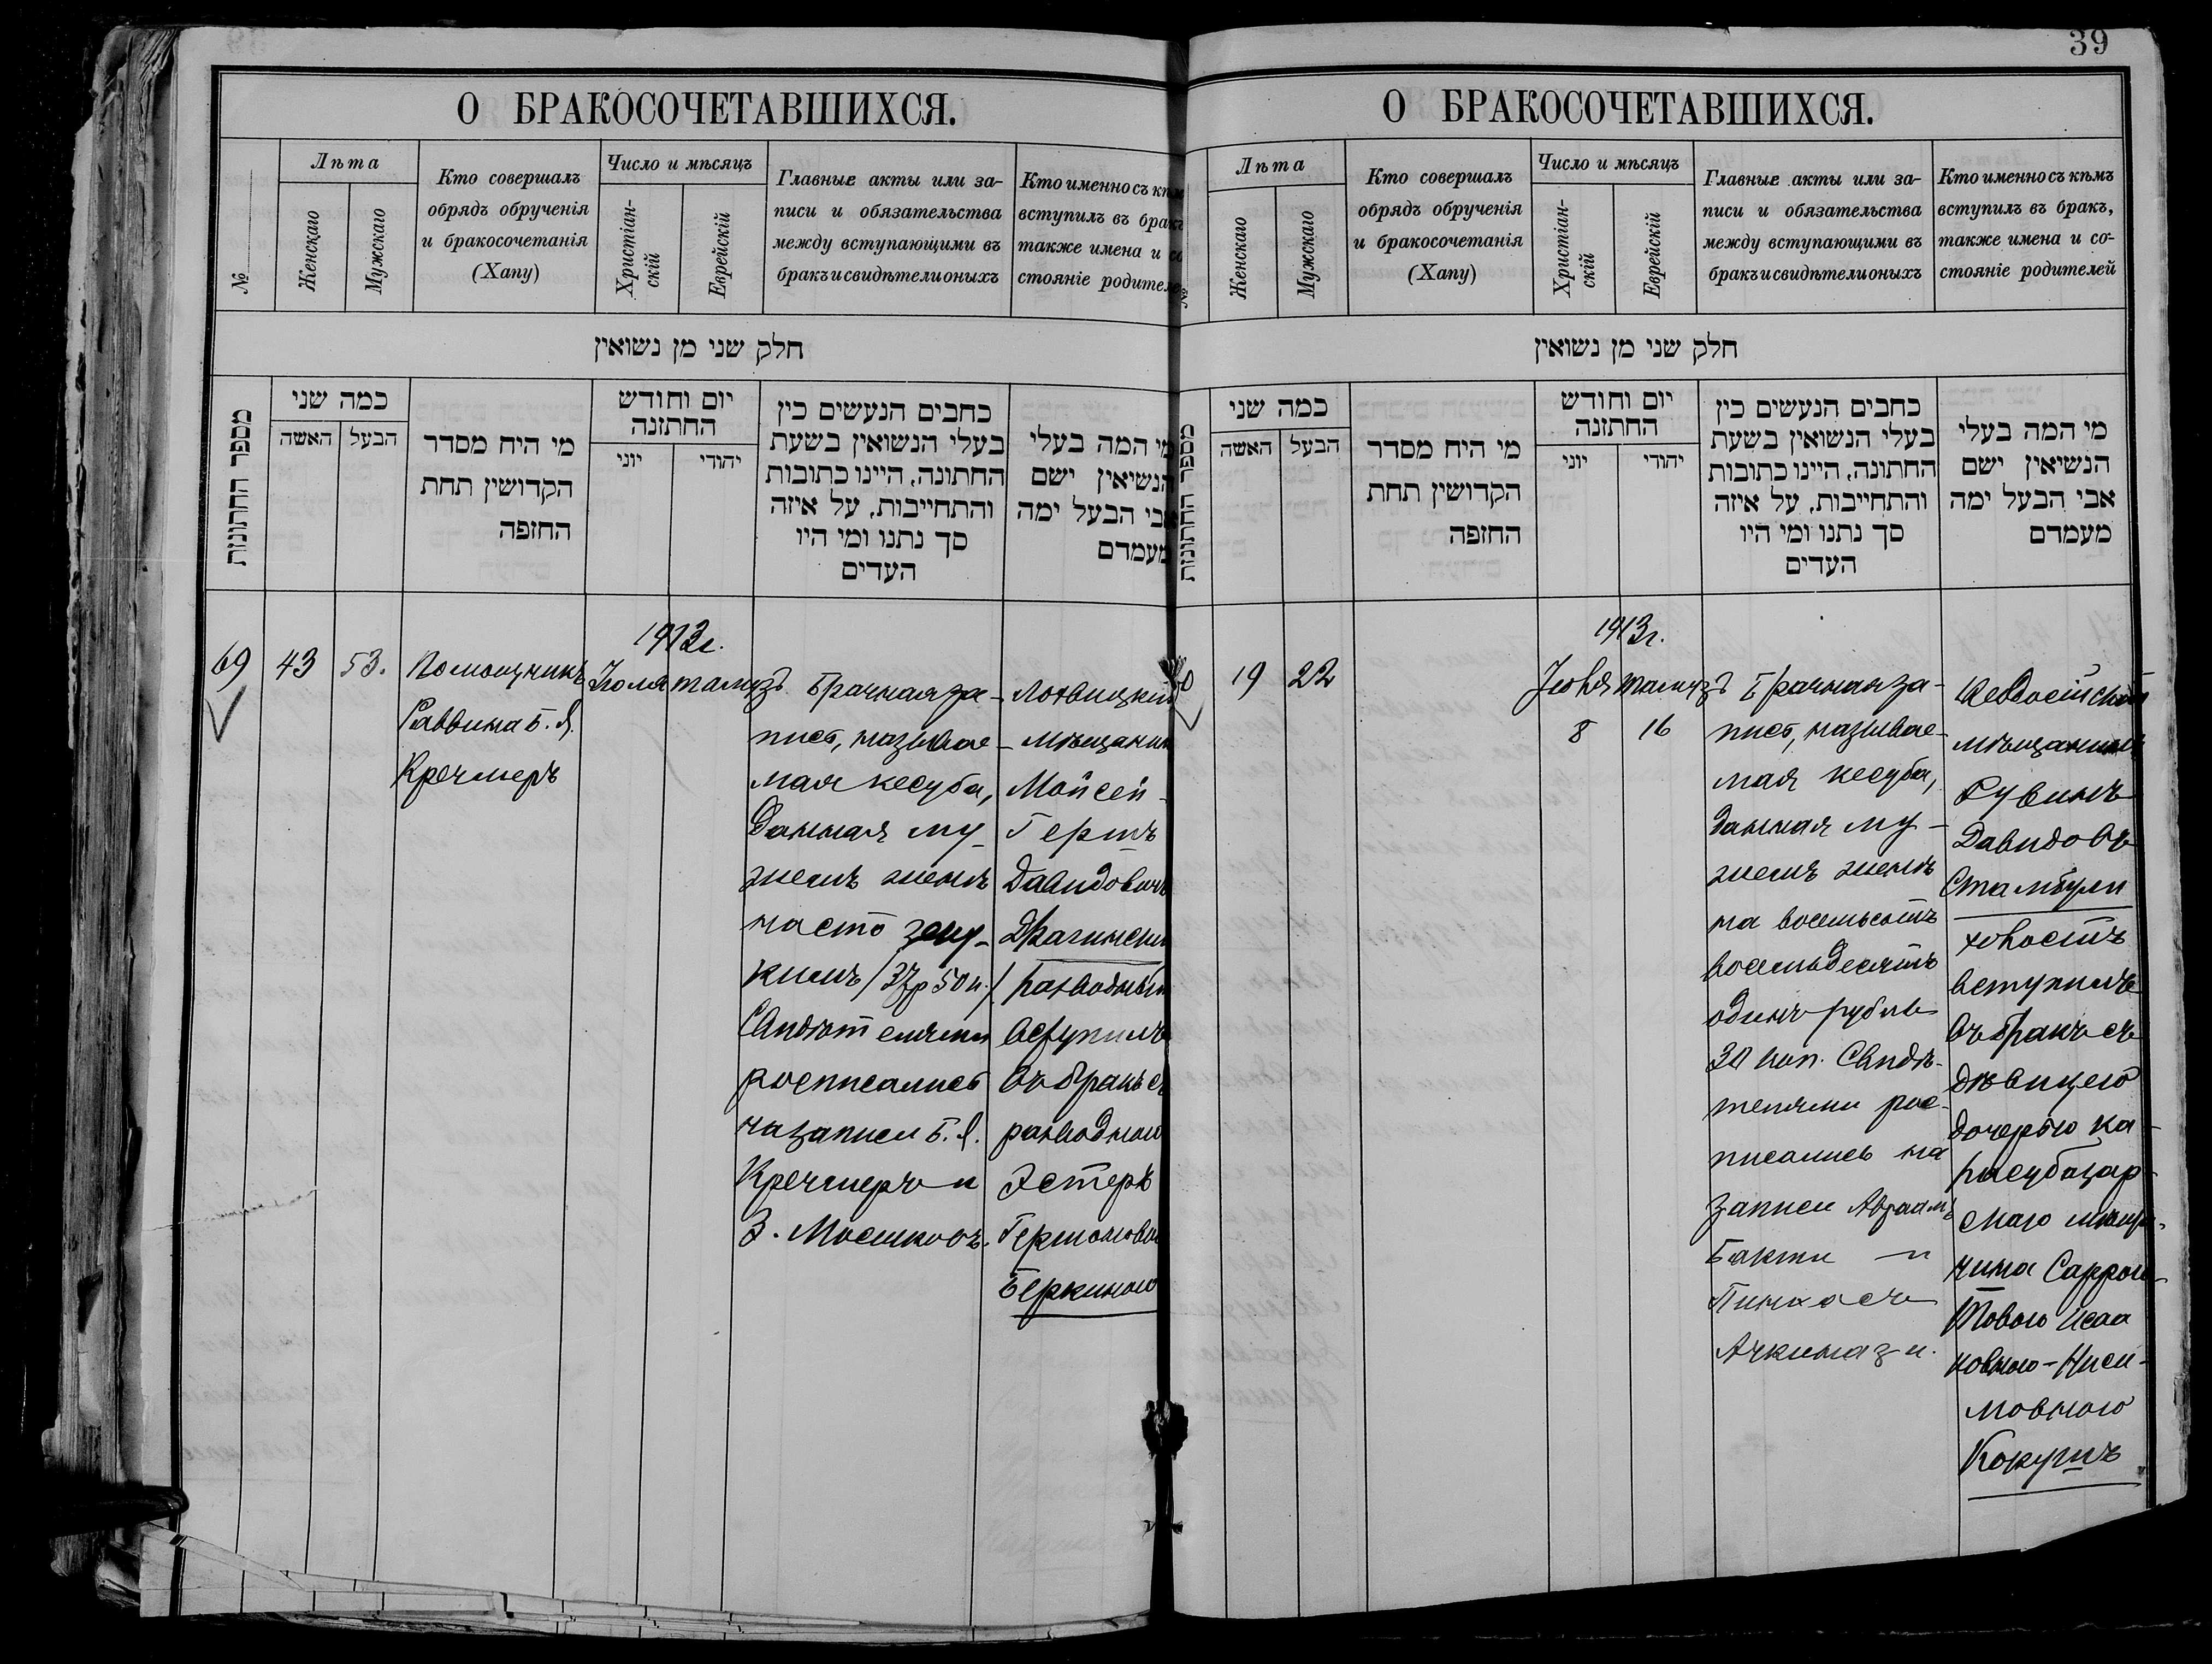 39
О БРАКОСОЧЕТАВШИХСЯ.
№
Лѣта
Женскаго
Мужскаго
Кто совершалъ
обрядъ обрученія
и бракосочетанія
(Хапу)
Число и мѣсяцъ
Христіан-
скій
Еврейскій
Главные акты или за-
писи и обязательства
между вступающими въ
бракъ и свидѣтели оныхъ
Кто именно съ кѣм
вступилъ въ бракъ
также имена и со
стояніе родителе
חלק שני מן נשואין
מספר החתונות
כמה שני
האשה
הבעל
מי היח מסדר
הקדושין תחת
החזפה
יום וחודש
החתזנה
יוני
יהודי
כחבים הנעשים כין
בעלי הנשואין בשעת
החתונה, היינו כתובות
והתחייבות, על איזה
סך נתנו ומי היו
העדים
מי המה בעלי
הנשיאין ישם
אבי הבעל ימה
מעמדם
69
43
53.
Помощникъ
Раввина Б. Я.
Кречмеръ
1913г.
Іюля
тамузъ
Брачная за-
пись, называе-
мая кесуба,
данная му-
жемъ женѣ
на сто зеу-
кимъ /37р 50к./
Свидѣтелями
росписались
на записи Б. Я.
Кречмеръ и
З. Мошковъ.
Лохвицкій
мѣщанин
Мойсей-
Гершъ
Давидовичъ
Драгинскій
разводный
вступилъ
въ бракъ съ
разводною
Эстеръ
Гершоновой
Беркиною
О БРАКОСОЧЕТАВШИХСЯ.
№
Лѣта
Женскаго
Мужскаго
Кто совершалъ
обрядъ обрученія
и бракосочетанія
(Хапу)
Число и мѣсяцъ
Христіан-
скій
Еврейскій
Главные акты или за-
писи и обязательства
между вступающими въ
бракъ и свидѣтели оныхъ
Кто именно съ кѣмъ
вступилъ въ бракъ,
также имена и со-
стояніе родителей
חלק שני מן נשואין
מספר החתונות
כמה שני
האשה
הבעל
מי היח מסדר
הקדושין תחת
החזפה
יום וחודש
החתזנה
יוני
יהודי
כחבים הנעשים כין
בעלי הנשואין בשעת
החתונה, היינו כתובות
והתחייבות, על איזה
סך נתנו ומי היו
העדים
מי המה בעלי
הנשיאין ישם
אבי הבעל ימה
מעמדם
19
22
1913г.
Іюля
8
тамузъ
16
Брачная за-
пись, называе-
мая кесуба,
данная му-
жемъ женѣ
на восемьсотъ
восемьдесятъ
одинъ рубль
30 коп. Свидѣ-
телями рос-
писались на
записи Авраамъ
Бакши и
Пинхасъ
Ачкинази.
Ѳеодосійскій
мѣщанинъ
Рувинъ
Давидовъ
Стамбули
холостъ
вступилъ
въ бракъ съ
дѣвицею
дочерью ка-
расубазар-
скаго мѣща-
нина Саррою-
Товою Исаа
ковною-Ниси-
мовною
Кокушъ